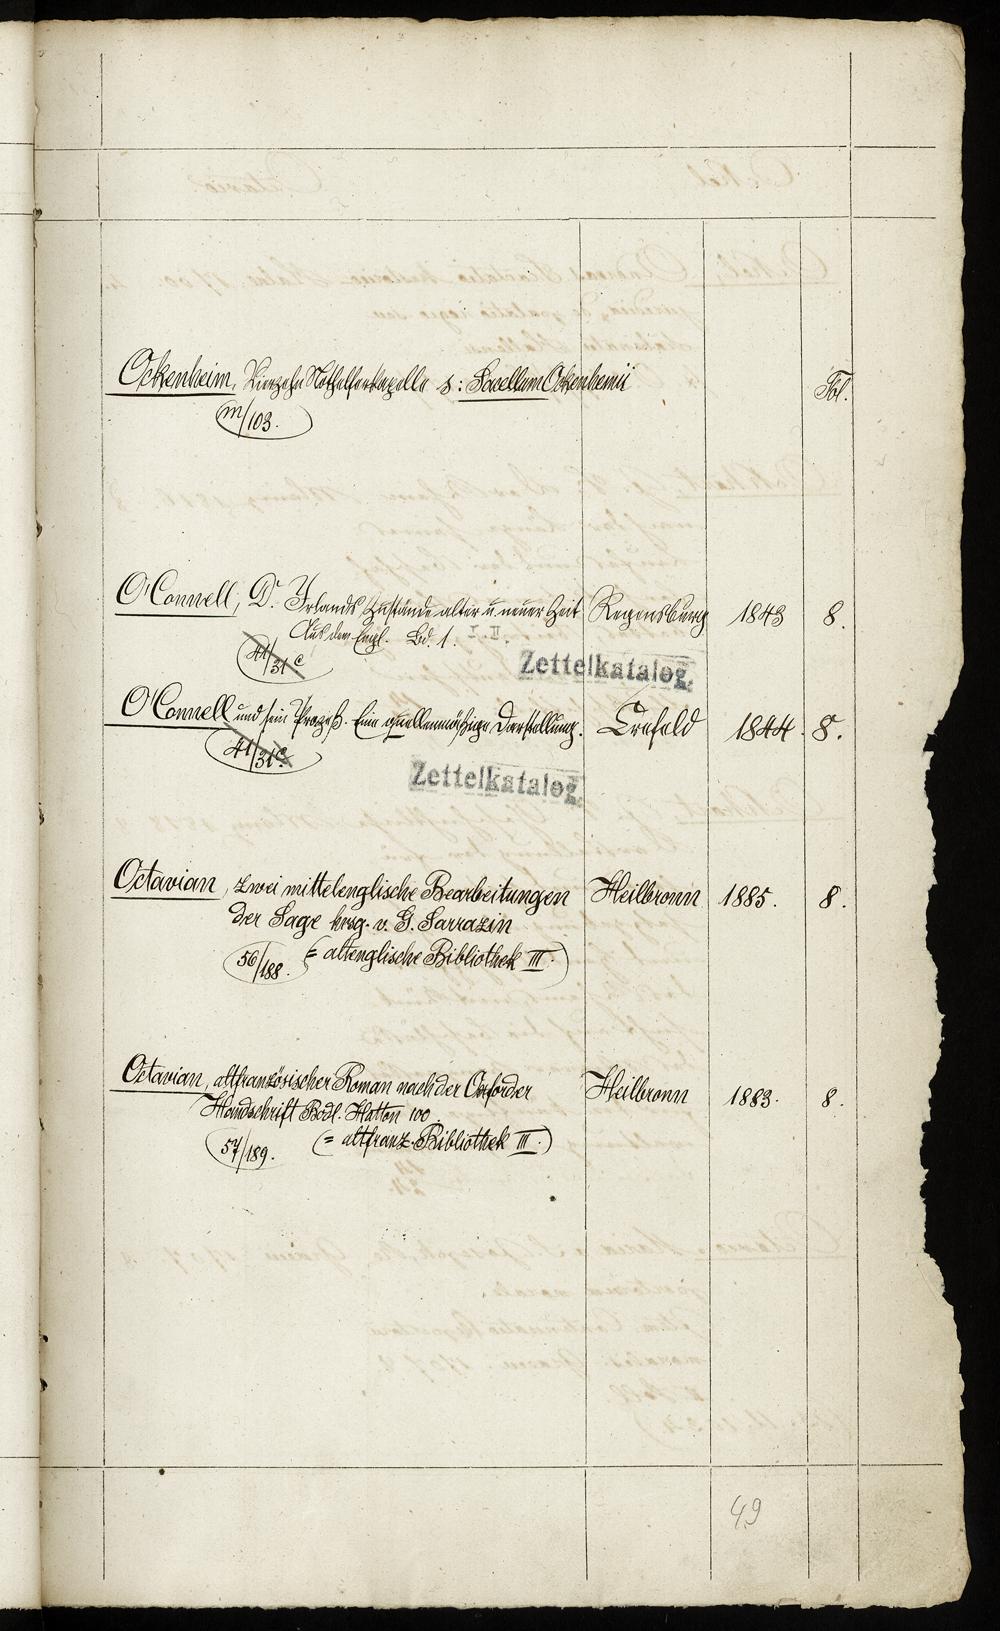 Ockenheim, Vierzehn Nothelferkapelle s: Sacellum Ockenhemii Fol.
m/103.
O'Connell, D. Irlands Zustände alter u. neuer Zeit Regensburg 1843 8.
Aus dem Engl. Bd. 1. I. II.
41/31c
Zettelkatalog.
O'Connell und sein Prozeß. Eine quellenmäßige Darstellung. Crefeld 1844. 8.
41/31c.
Zettelkatalog.
Octavian, zwei mittelenglische Bearbeitungen Heilbronn 1885. 8.
der Sage hrsg. v. G. Sarrazin
56/188. (= altenglische Bibliothek III.)
Octavian, altfranzösischer Roman nach der Oxforder Heilbronn 1883. 8.
Handschrift Bodl. Hatton 100.
57/189. (= altfranz. Bibliothek III.)
49